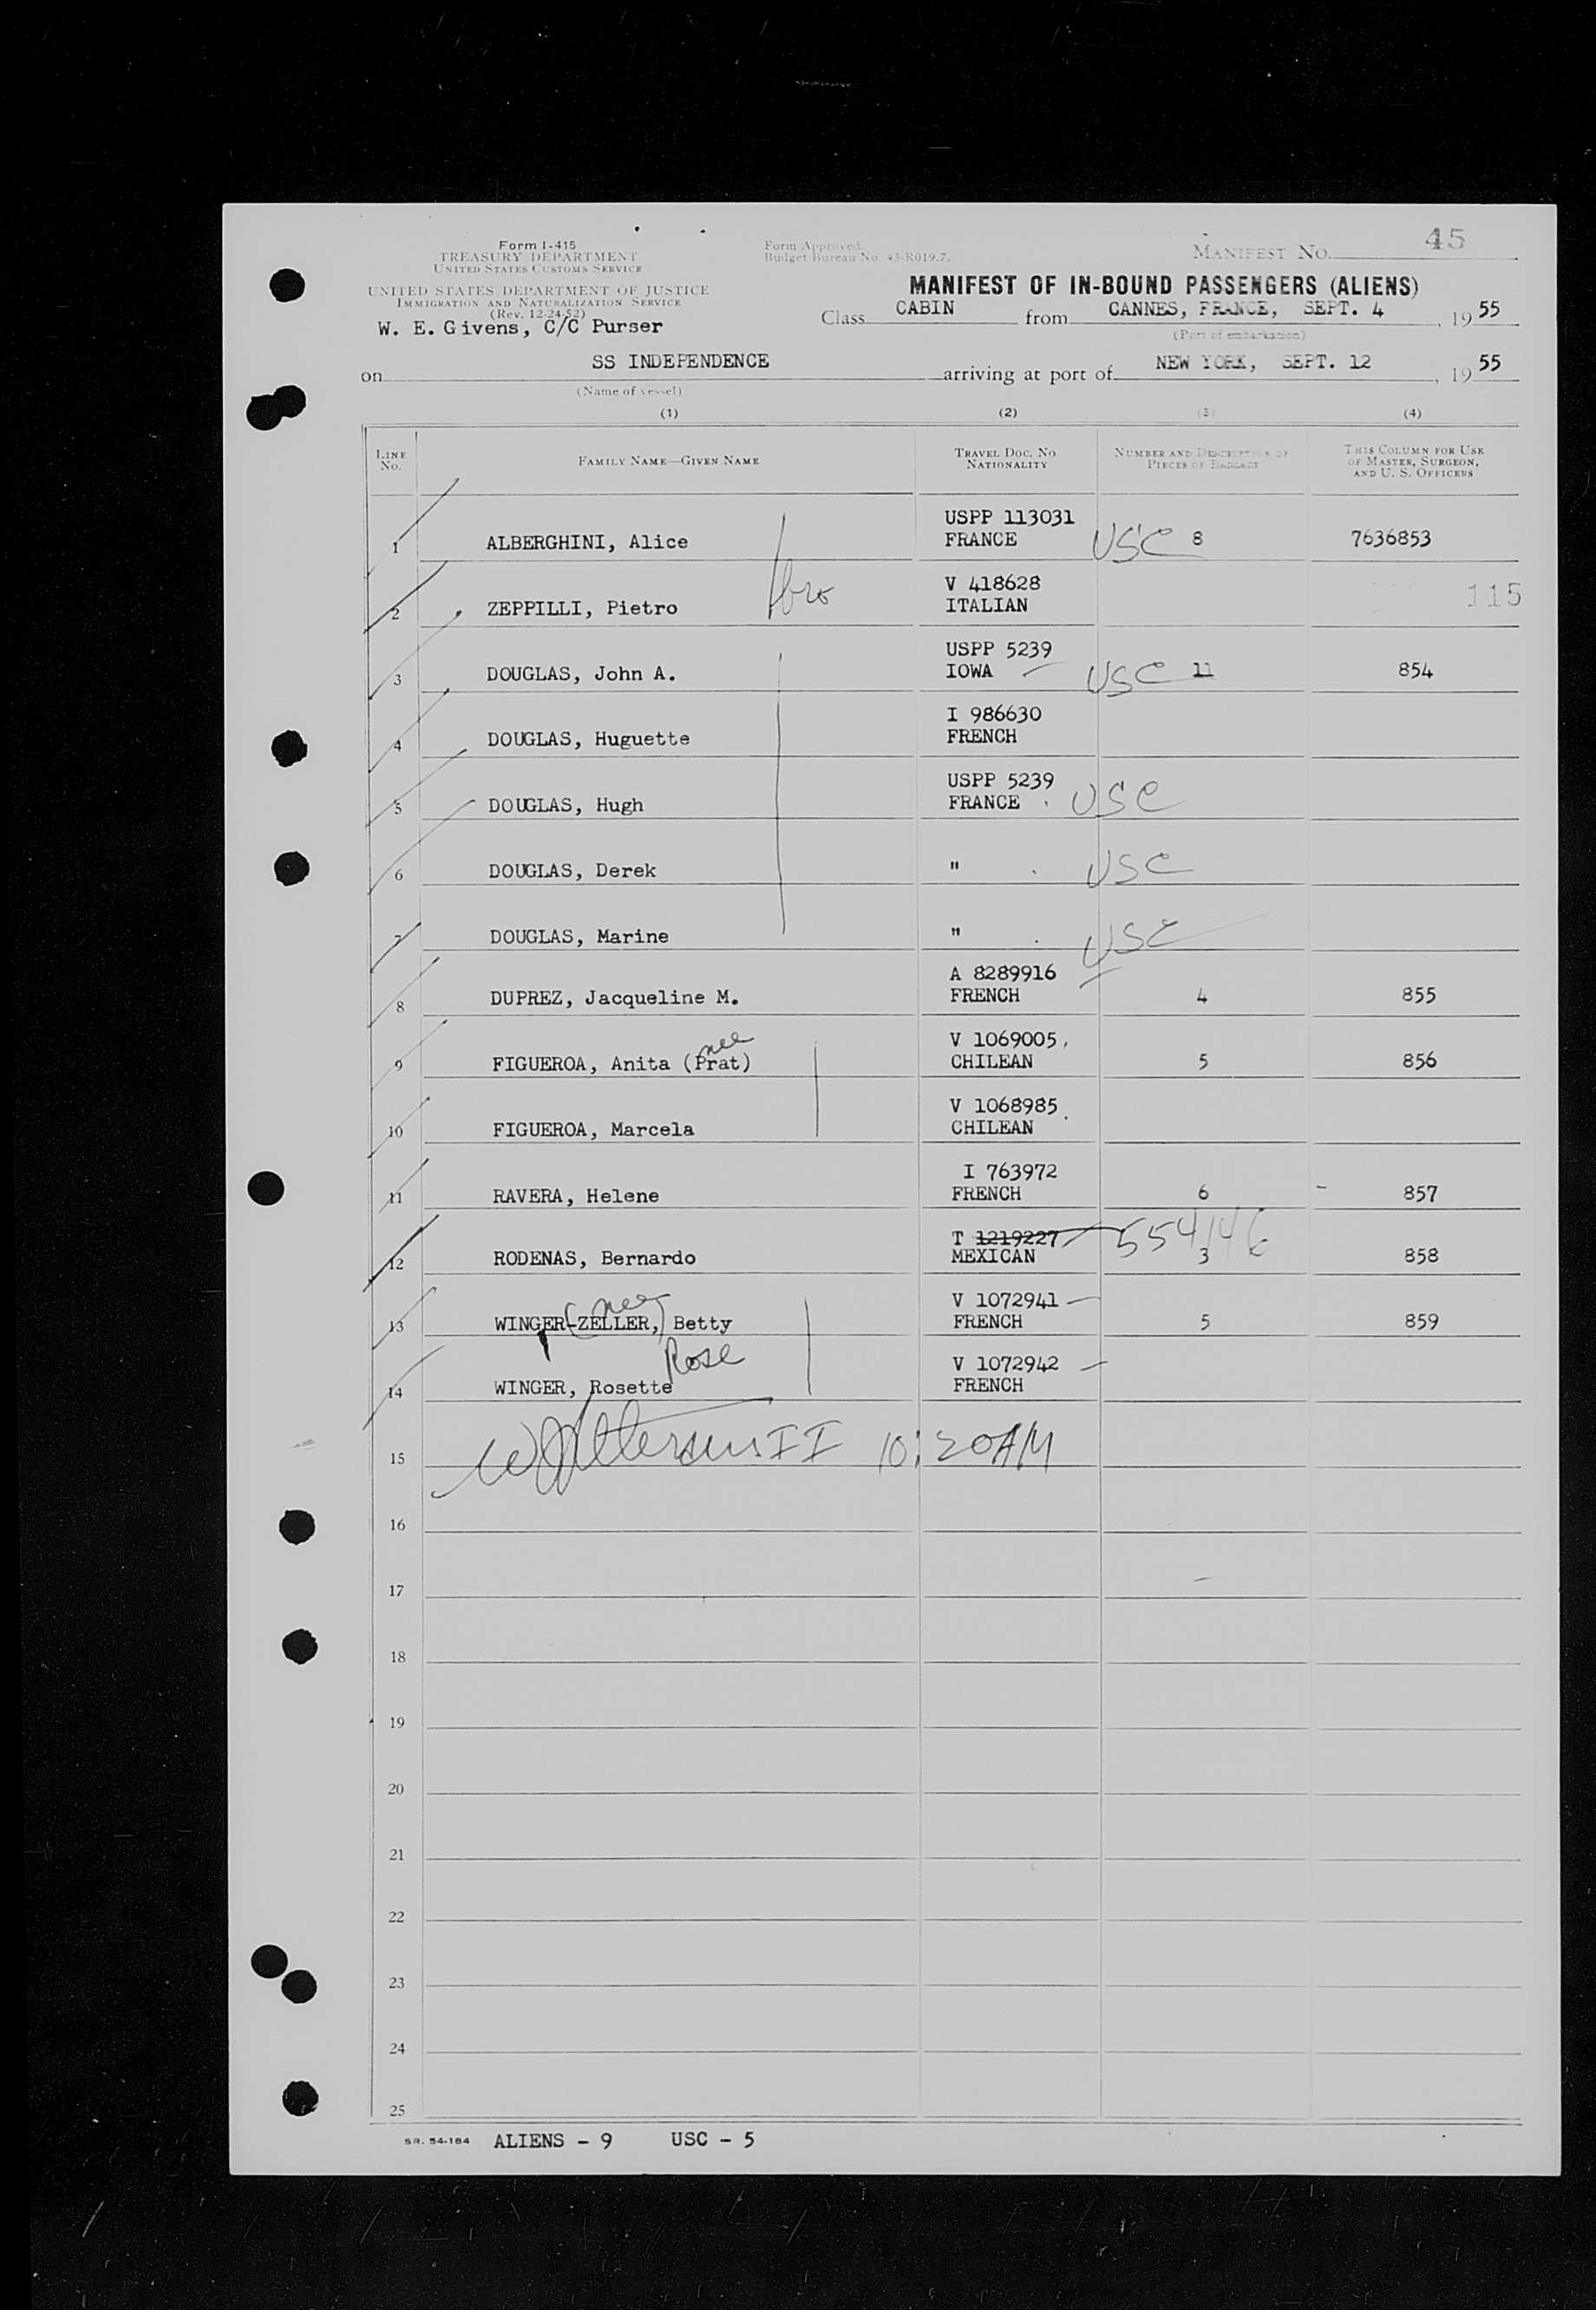 45
Form I-415
TREASURY DEPARTMENT
UNITED STATES CUSTOMS SERVICE
Form Approved.
Budget Bureau No. 43-R019.7.
MANIFEST NO.
UNITED STATES DEPARTMENT OF JUSTICE
IMMIGRATION AND NATURALIZATION SERVICE
(Rev. 12-24-52)
MANIFEST OF IN-BOUND PASSENGERS (ALIENS)
W. E. Givens, C/C Purser
Class CABIN from CANNES, FRANCE, SEPT. 4, 19 55
(Port of embarkation)
on SS INDEPENDENCE arriving at port of NEW YORK, SEPT. 12, 19 55
(Name of vessel)
(1) (2) (3) (4)
LINE NO. FAMILY NAME—GIVEN NAME TRAVEL DOC. NO NATIONALITY NUMBER AND DESCRIPTION OF PIECES OF BAGGAGE THIS COLUMN FOR USE OF MASTER, SURGEON, AND U. S. OFFICERS
USPP 113031
1 ALBERGHINI, Alice FRANCE USC 8 7636853
V 418628
2 ZEPPILLI, Pietro bro ITALIAN 115
USPP 5239
3 DOUGLAS, John A. IOWA USC 11 854
I 986630
4 DOUGLAS, Huguette FRENCH
USPP 5239
5 DOUGLAS, Hugh FRANCE USC
6 DOUGLAS, Derek " USC
7 DOUGLAS, Marine " USC
A 8289916
8 DUPREZ, Jacqueline M. FRENCH 4 855
nee V 1069005
9 FIGUEROA, Anita (Prat) CHILEAN 5 856
V 1068985
10 FIGUEROA, Marcela CHILEAN
I 763972
11 RAVERA, Helene FRENCH 6 857
T 1219227 554146
12 RODENAS, Bernardo MEXICAN 3 858
nee V 1072941
13 WINGER-(ZELLER,) Betty FRENCH 5 859
Rose V 1072942
14 WINGER, Rosette FRENCH
15 10:20AM
16
17
18
19
20
21
22
23
24
25
SR. 54-184 ALIENS - 9 USC - 5